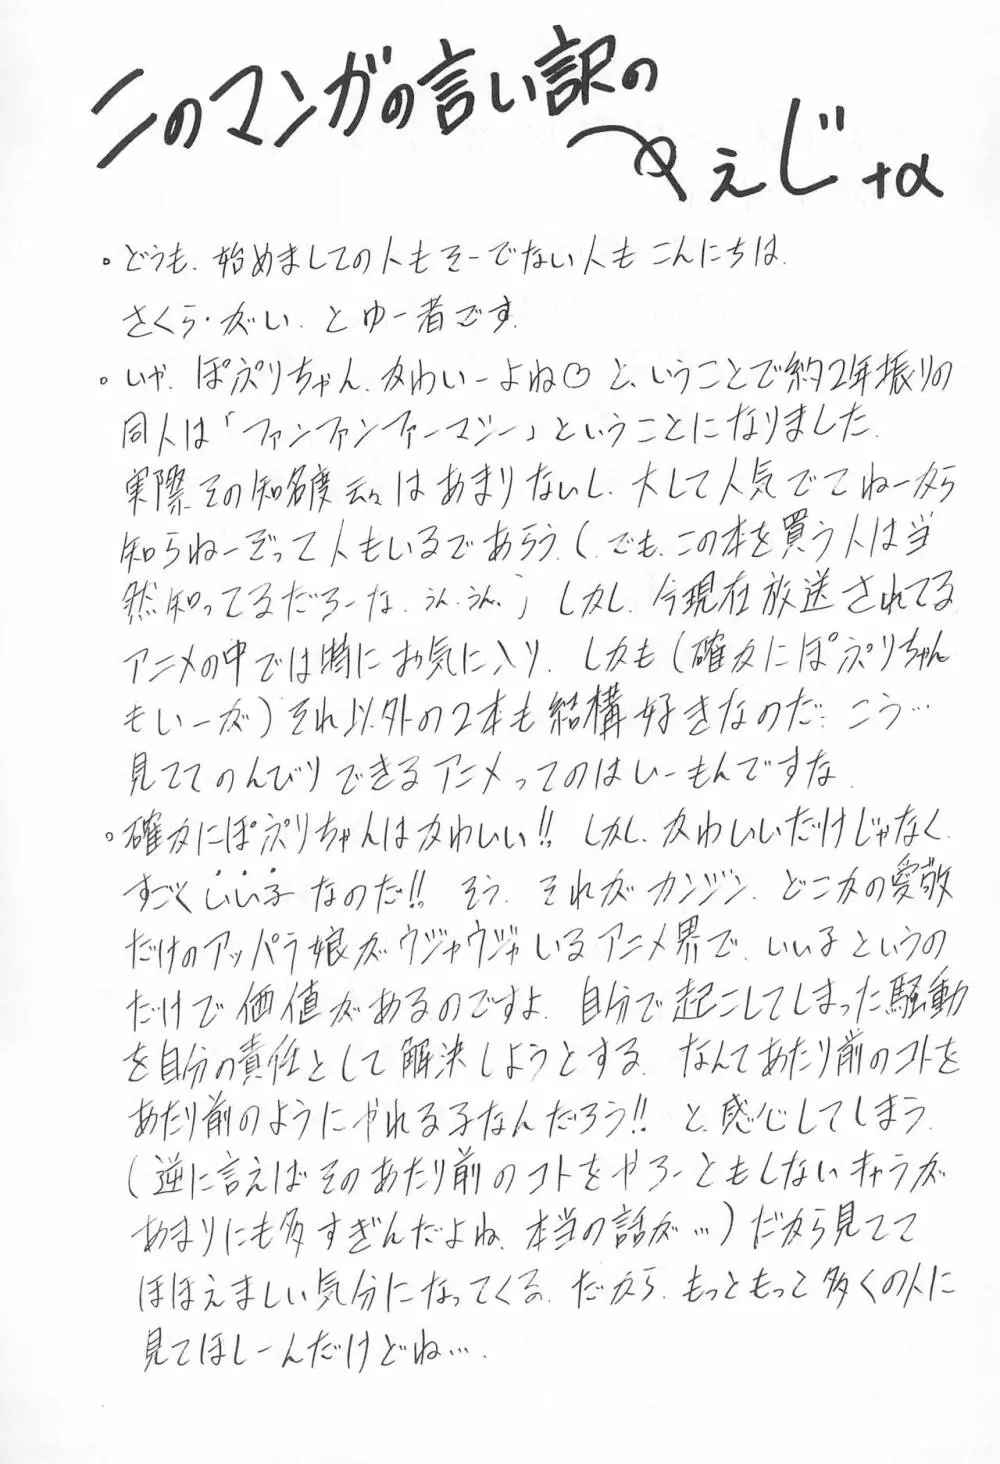 このマンガの言い訳の
ぺぇじ+α
。どうも、始めましての人もそーでない人もこんにちは。
さくら・がい、とゆー者です。
。いや、ぽぷりちゃん、かわいーよね♡と、いうことで約2年振りの
同人は「ファンファンファーマシー」ということになりました。
実際その知名度云々はあまりないし、大して人気でてねーから
知らねーぞって人もいるであらう、(でも、この本を買う人は当
然知ってるだろーな、うん、うん。)しかし、今現在放送されてる
アニメの中では特にお気に入り、しかも(確かにぽぷりちゃん
もいーが)それ以外の2本も結構好きなのだ。こう…
見ててのんびりできるアニメってのはいーもんですな。
。確かにぽぷりちゃんはかわいい!!しかし、かわいいだけじゃなく、
すごくいい子なのだ!!そう、それがカンジン、どこかの愛敬
だけのアッパラ娘がウジャウジャいるアニメ界で、いい子というの
だけで価値があるのですよ。自分で起こしてしまった騒動
を自分の責任として解決しようとする、なんてあたり前のコトを
あたり前のようにやれる子なんだろう!!と、感心してしまう。
(逆に言えばそのあたり前のコトをやろーともしないキャラが
あまりにも多すぎんだよね、本当の話が…)だから見てて
ほほえましい気分になってくる。だから、もっともっと多くの人に
見てほしーんだけどね…。